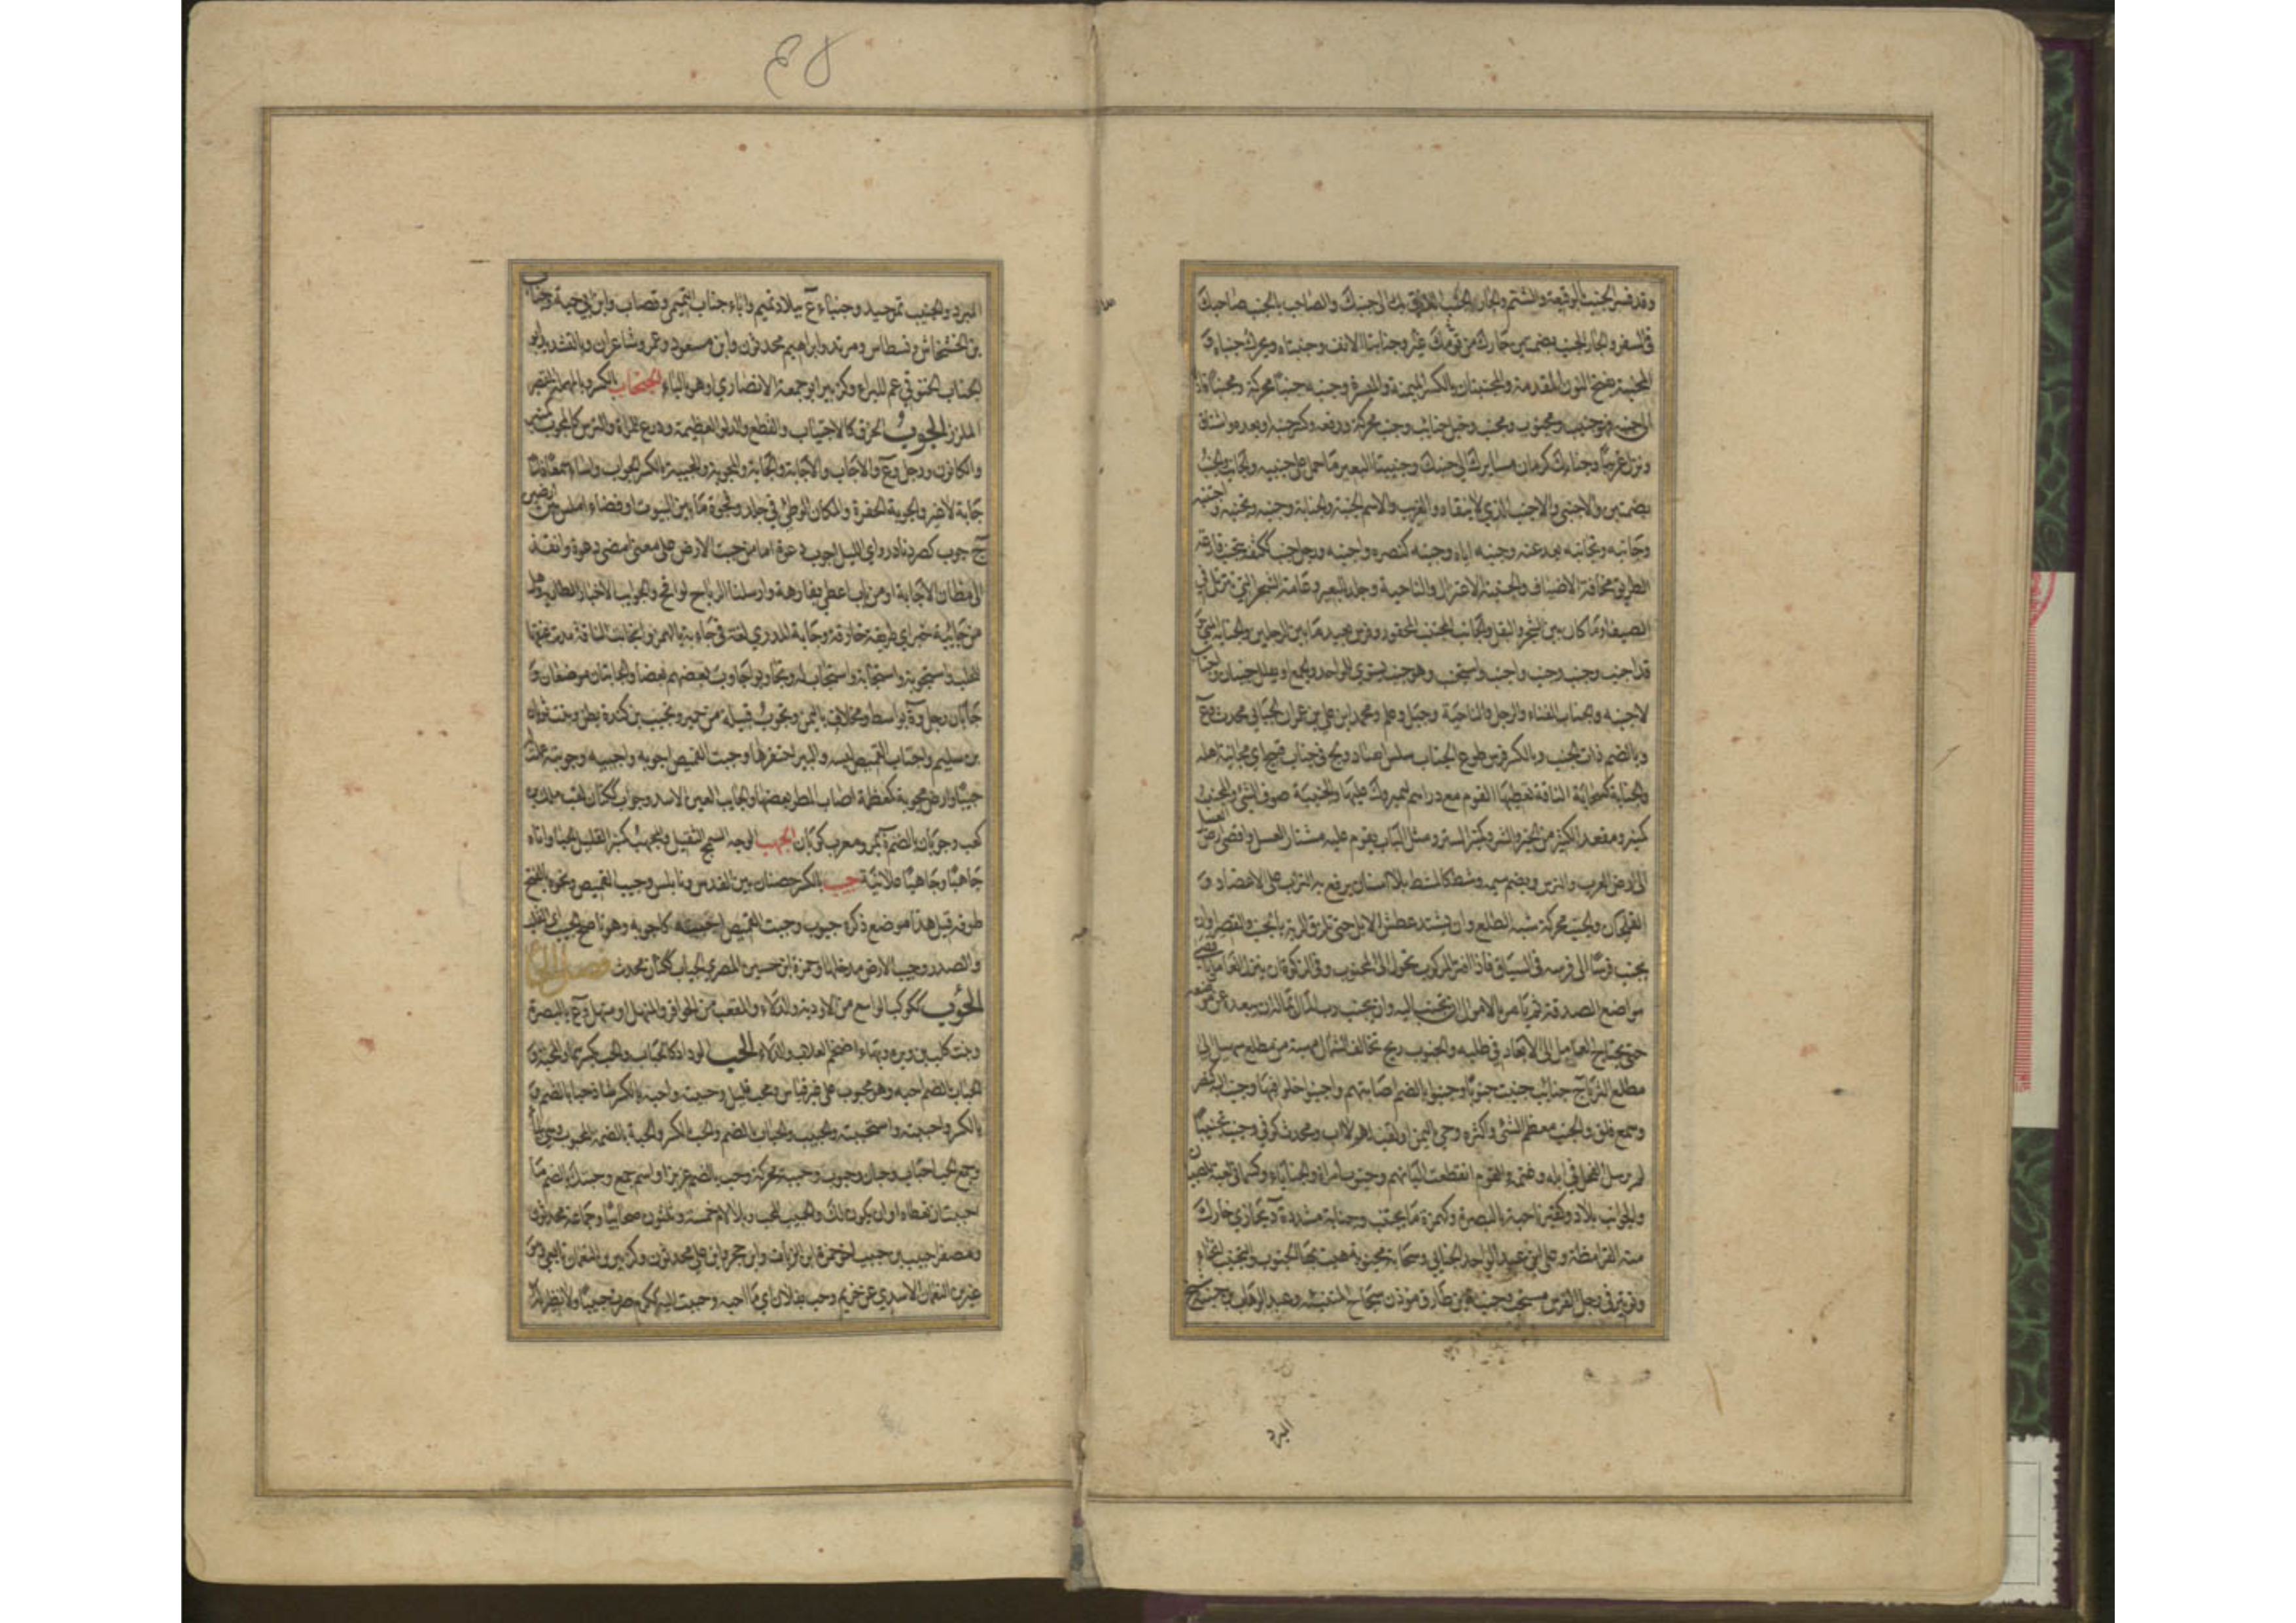 وقد فسر الجنب بالوقيعة والشتم والجار الجنب اللازق بك الى جنبك والصاحب بالجنب صاحبك
في السفر والجار الجنب بضمتين جارك من قوم غيرك وجنابتا الانف وجنبتاه ويحرك جنباه و
المجنبة بفتح النون المقدمة والمجنبتان بالكسر الميمنة والميسرة وجنبه جنبا محركة ومجنبا قاده
الى جنبه فهو جنيب ومجنوب ومجنب وخيل جنائب وجنب محركة ودفعه وكسر جنبه وابعده واشتاق
ونزل غريبا وجنابك كرمان مسايرك الى جنبك وجنيبتا البعير ما حمل على جنبيه والجانب والجنب
بضمتين والاجنبي والاجنب الذي لا ينقاد والغريب والاسم الجنبة والجنابة وجنبه وتجنبه واجتنبه
وجانبه وتجانبه بعد عنه وجنبه اياه وجنبه كنصره واجنبه ورجل جنب ككتف يتجنب قارعة
الطريق مخافة الاضياف والجنبة الاعتزال والناحية وجلد للبعير وعامة الشجر التي تتربل في
الصيف او ما كان بين الشجر والبقل والجانب المجتنب المحقور وفرس بعيد ما بين الرجلين والجنابة المني و
قد اجنب وجنب وجنب واجنب واستجنب وهو جنب يستوي للواحد والجمع او يقال جنبان واجناب
لا جنبة والجناب الفناء والرحل والناحية وجبل وعلم ومحمد بن علي بن عمران الجنابي محدث وع
وبالضم ذات الجنب وبالكسر فرس طوع الجناب سلس القياد ولج في جناب قبيح اي مجانبة اهله
والجنابة كسحابة الناقة تعطيها القوم مع دراهم ليميروك عليها والجنيبة صوف الثني والمجنب
كمنبر ومقعد الكثير من الخير والشر وكمنبر الستر ومثل الباب يقوم عليه مشتار العسل واقصى ارض
الى ارض العرب والترس ويضم ميمه وشبح كالمشط بلا اسنان يرفع به التراب على الاعضاد و
الفلجان والجنب محركة شبه الظلع وان يشتد عطش الابل حتى تلزق الرية بالجنب والقصير وان
يجنب فرسا الى فرسه في السباق فاذا فتر المركوب تحول الى المجنوب وفي الزكوة ان ينزل العامل باقصى
مواضع الصدقة ثم يامر بالاموال ان تجنب اليه وان يجنب رب المال بماله ان يبعده عن موضعه
حتى يحتاج العامل الى الابعاد في طلبه والجنوب ريح تخالف الشمال مهبها من مطلع سهيل الى
مطلع الثريا ج جنائب جنبت جنوبا وجنبوا بالضم اصابتهم واجنبوا دخلوا فيها وجنب اليه كنصر
وسمع قلق والجنب معظم الشئ واكثره وحي باليمن او لقب لهم لا اب ومحدث كوفي وجنب تجنيبا
لم يرسل الفحل في ابله وغنمه والقوم انقطعت البانهم وجنوب امراة والجناباء وكسمانى لعبة للصبيان
والجوانب بلاد وكقبر ناحية بالبصرة وكهمزة ما يجتنب وجنابة مشددة د يحاذي خارك
منه القرامطة وعلي بن عبد الواحد الجنابي وسحابة مجنوبة هبت بها الجنوب والتجنيب انحناء
وتوتير في رجل الفرس مستحب وجنبة بن طارق مؤذن سجاح المتنبئة وعبد الوهاب بن جنبة شيخ
المبرد
المبرد والجنيب تمر جيد وجنباء ع ببلاد تميم واباء جناب التميمي وقصاب وابن ابي حية وجناب
بن الخشخاش ونسطاس ومرثد وابراهيم محدثون وابن مسعود وعمرو شاعران وبالتشديد ابو
الجناب الخيوقي نجم الكبراء وكزبير ابو جمعة الانصاري او هو بالباء الجنخاب بالكسر وبالمهملة القصير
الملزز الجوب الخرق كالاجتياب والقطع والدلو العظيمة ودرع للمراة والترس كالمجوب كمنبر
والكانون ورجل وع والاجاب والاجابة والجابة والمجوبة والجيبة بالكسر الجواب واساء سمعا فاساء
جابة لا غير والجوبة الحفرة والمكان الوطئ في جلد وفجوة ما بين البيوت او فضاء املس بين ارضين
ج جوب كصرد نادر واي الليل اجوب دعوة اما من جبت الارض على معنى امضى دعوة وانفذ
الى مظان الاجابة او من باب اعطى لفارهة وارسلنا الرياح لواقح والجوائب الاخبار الطارئة وهل
من جائبة خبر اي طريفة خارقة وجابة المدرى لغة في جابته بالهمز وانجابت الناقة مدت عنقها
للحلب واستجوبه واستجابه واستجاب له وتجاوبوا جاوب بعضهم بعضا والجابتان موضعان و
جابان رجل وة بواسط ومخلاف باليمن وتجوب قبيلة من حمير وتجيب بن كندة بطن وبنت ثوبان
بن سليم واجتاب القميص لبسه والبئر احتفرها وجبت القميص اجوبه واجيبه وجوبته عملت له
جيبا وارض مجوبة كمعظمة اصاب المطر بعضها والجائب العين الاسد وجواب ككتان لقب مالك بن
كعب وجوبان بالضم ة بمرو معرب كوبان الجهب الوجه السمج الثقيل والمجهب كمنبر القليل الحياء واتاه
جاهبا وجاهيا علانية جيب بالكسر حصنان بين القدس ونابلس وجيب القميص ونحوه بالفتح
طوقه قيل هذا موضع ذكره ج جيوب وجبت القميص اجيبه كاجوبه وهو ناصح الجيب اي القلب
والصدر وجيب الارض مدخلها وحمزة بن حسين المصري الجياب ككتان محدث فصل الحاء
الحوأب ككوكب الواسع من الاودية والدلاء والمقعب من الحوافر والمنهل او منهل وع بالبصرة
وبنت كلب بن وبرة وبهاء اضخم العلاب والدلاء الحب الوداد كالحباب والحب بكسرهما والمحبة و
الحباب بالضم احبه وهو محبوب على غير قياس ومحب قليل وحببته احبه بالكسر شاذ حبا بالضم و
بالكسر واحببته واستحببته والحبيب والحباب بالضم والحب بالكسر والحبة بالضم المحبوب وهي بهاء
وجمع الحب احباب وحبان وحبوب وحببة محركة وحب بالضم عزيز او اسم جمع وحبتك بالضم ما
احببت ان تعطاه او ان يكون لك والحبيب المحب وبلا لام خمسة وثلثون صحابيا وجماعة محدثون
ومصغرا حبيب بن حبيب اخو حمزة الزيات وابن حجر وابن علي محدثون وكزبير بن النعمان تابعي وهو
غير بن النعمان الاسدي عن خريم وحب بفلان اي ما احبه وحببت اليه ككرم صرت حبيبا ولا نظير له